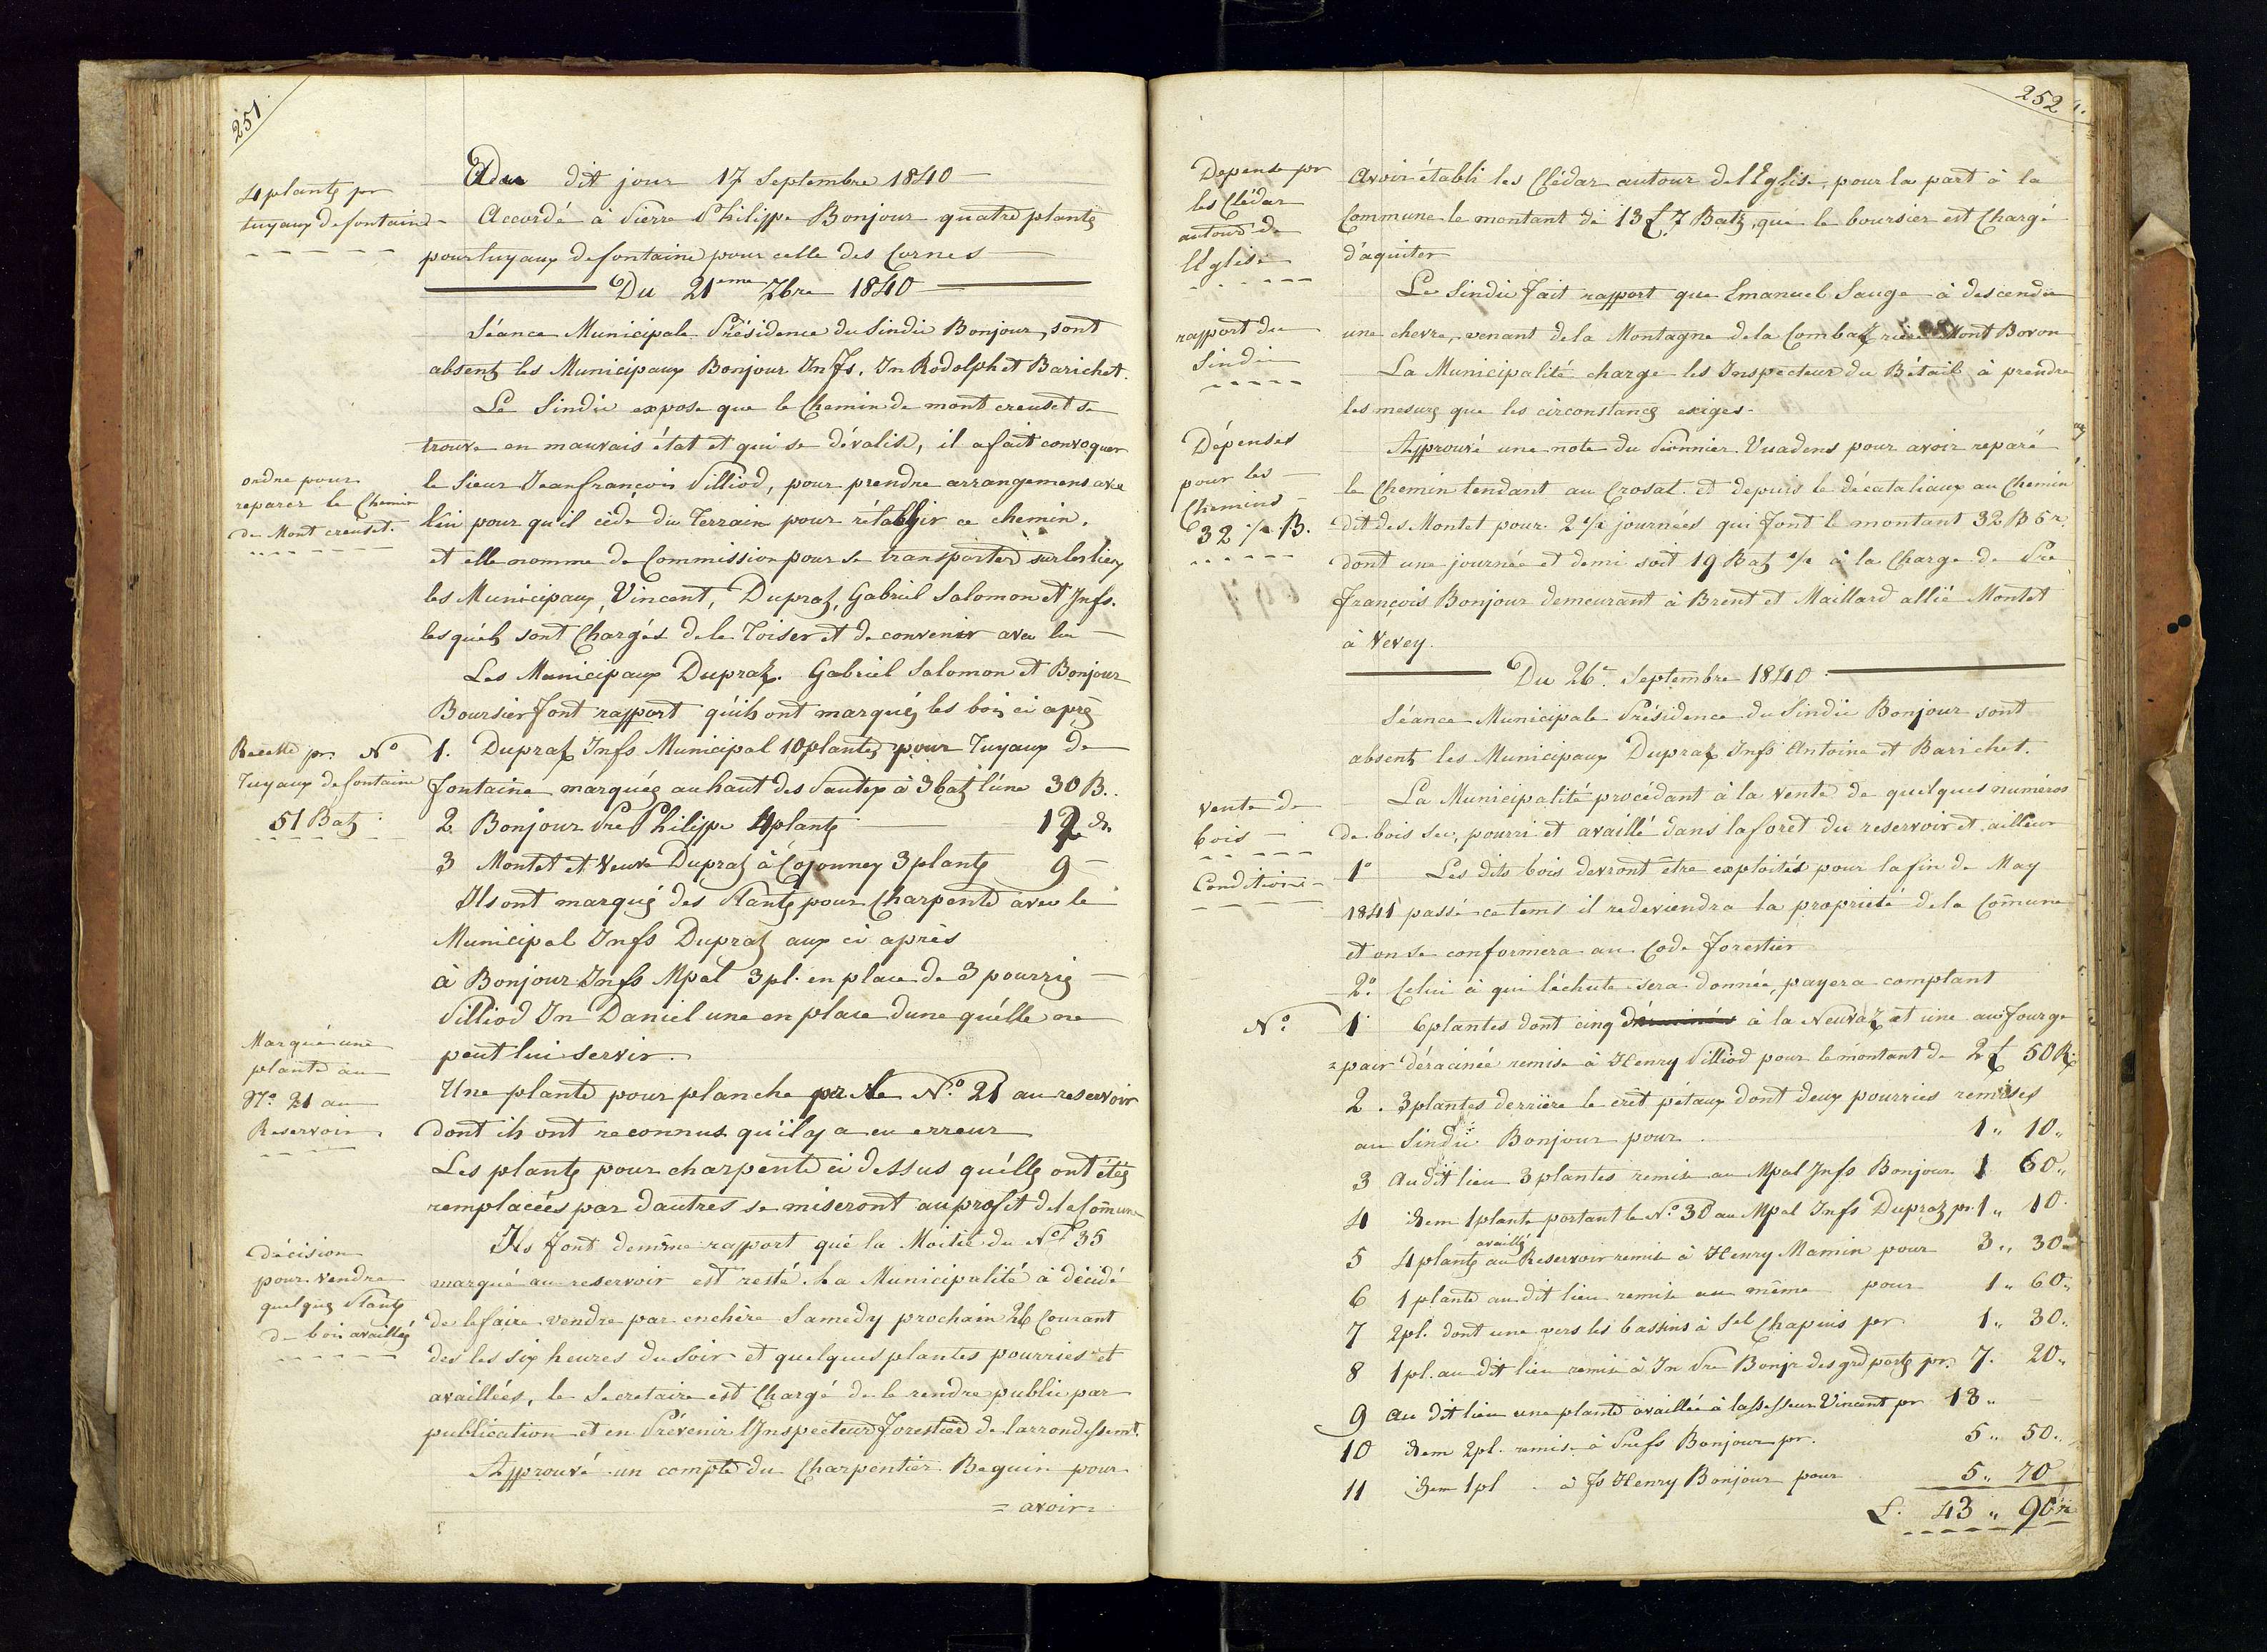 251
4 plants pr
tuyaux de fontaine
Du dit jour 17 Septembre 1840
Accordé à Pierre Philippe Bonjour quatre plants
pour tuyaux de fontaine pour celle des Cornes
Du 21eme 7bre 1840
Séance Municipale Présidence du Sindic Bonjour, sont
absents les Municipaux Bonjour Jn Fs, Jn Rodolph et Barichet.
Le Sindic expose que le Chemin de mont creuset se
trouve en mauvais état et qui se dévalise, il a fait convoquer
ordre pour
reparer le Chemin
de Mont creuset.
le Sieur Jean françois Pilliod, pour prendre arrangemens avec
lui pour qu'il cède du Terrain pour rétablir ce chemin,
et elle nomme de Commission pour se transporter sur les lieux
les Municipaux, Vincent, Dupraz, Gabriel Salomon et Jnfs.
lesquels sont Chargés de le Toiser et de convenir avec lui
Les Municipaux Dupraz. Gabriel Salomon et Bonjour
Boursier font rapport qu'ils ont marqués les bois ci après
Recette pr. No
Tuyaux de fontaine
51 Batz
1. Dupraz Jnfs Municipal 10 plantes pour Tuyaux de
fontaine marqués au haut des Pautex à 3 batz l'une 30 B.
2 Bonjour Pre Philippe 4 plants 12 d.
3 Montet et Veuve Dupraz à Cojonney 3 plants 9
Ils ont marqué des Plants pour Charpente avec le
Municipal Jnfs Dupraz aux ci après
à Bonjour Jnfs Mpal 3 pl. en place de 3 pourris
Pilliod Jn Daniel une en place d'une qu'elle ne
peut lui servir.
Marqué une
plante au
No. 21 au
Reservoir.
Une plante pour planche par le No. 21 au reservoir
dont ils ont reconnus qu'il y a eu erreur
Les plants pour charpente ci dessus qu'elle ont étés
remplacées par d'autres se miseront au profit de la Comune
Ils font de même rapport que la Moitié du No. 35
décision
pour vendre
quelques Plants
de bois availlés
marqué au reservoir est resté. La Municipalité à décidé
de le faire vendre par enchère Samedy prochain 26 Courant
des les six heures du Soir et quelques plantes pourries et
availlées, le Secretaire est Chargé de le rendre public par
publication et en Prévenir l'Inspecteur forestier de l'arrondissemt.
Approuvé un compte du Charpentier Beguin pour
= avoir =
252
Depense pr
les Clédar
autour de
l'Eglise
Avoir établi les Clédar autour de l'Eglise, pour la part à la
Commune le montant de 13 £ 7 Batz, que le boursier est Chargé
d'aquiter
rapport du
Sindic
Le Sindic fait rapport que Emanuel Sauge à descendu
une chevre, venant de la Montagne de la Combaz rière Mont Bovon
La Municipalité charge les Inspecteur du Bétail à prendre
les mesures que les circonstances exiges.
Dépenses
pour les
Chemins
32 1/2 B.
Approuvé une note du Pionnier Vuadens pour avoir reparé
le Chemin tendant au Crosat et depuis le décataliaux au Chemin
dit des Montet pour 2 1/2 journées qui font le montant 32 B 5 r.
dont une journée et demi soit 19 Batz 1/2 à la Charge de Pre
françois Bonjour demeurant à Brent et Maillard allié Montet
à Vevey.
Du 26e Septembre 1840
Séance Municipale Présidence du Sindic Bonjour sont
absents les Municipaux Dupraz Jnfs Antoine et Barichet.
vente de
bois
La Municipalité procédant à la vente de quelques numéros
de bois sec, pourri et availlé dans la foret du reservoir et ailleur
Condition
1o Les dits bois devront etre exploités pour la fin de May
1841 passé ce tems il redeviendra la propriété de la Comune
et on se conformera au Code forestier
2o. Celui à qui l'échute sera donnée, payera comptant
No. 1 6 plantes dont cinq à la Neuvaz et une au Fourge
=pair déracinée remise à Henry Pilliod pour le montant de 2 £ 50 R.
2. 3 plantes derrière le crêt pétaux dont deux pourries remises
au Sindic Bonjour pour 1 " 10 "
3 Au dit lieu 3 plantes remise au Mpal Jnfs Bonjour 1 60 "
4 Idem 1 plante portant le No. 30 au Mpal Jnfs Dupraz pr. 1 " 10
5 4 plants availlés au Reservoir remise à Henry Mamin pour 3 " 30 "
6 1 plante au dit lieu remise au même pour 1 " 60 "
7 2 pl. dont une vers les bassins à Sel Chapuis pr 1 " 30 "
8 1 pl. au dit lieu remise à Jn Pre Bonjr des grd ports pr. 7. 20 "
9 Au dit lieu une plante availlée à l'assesseur Vincent pr 13 "
10 Idem 2 pl. remise à Prefs Bonjour pr. 5 " 50 "
11 Idem 1 pl. à Fs Henry Bonjour pour 5 " 70
L. 43 " 90 r.